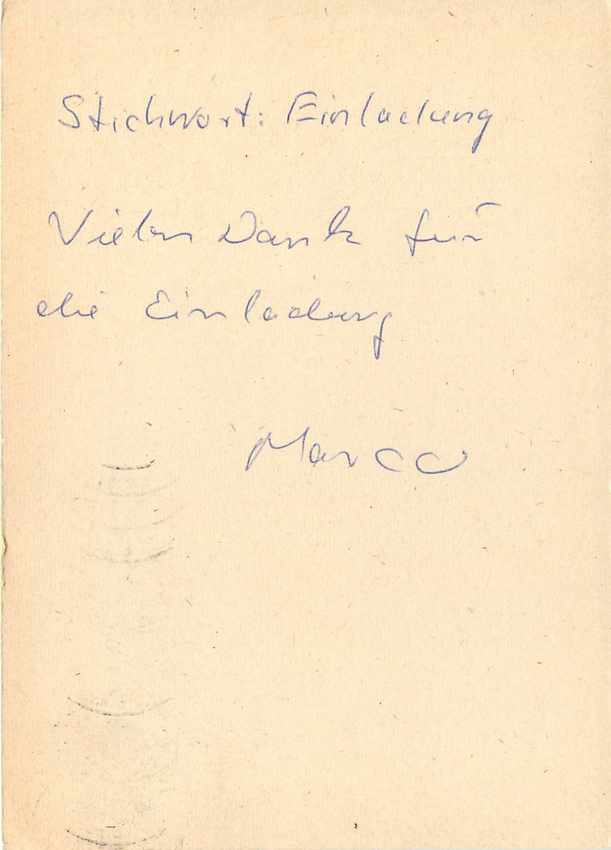 Stichwort: Einladung
Vielen Dank für
die Einladung
Marco